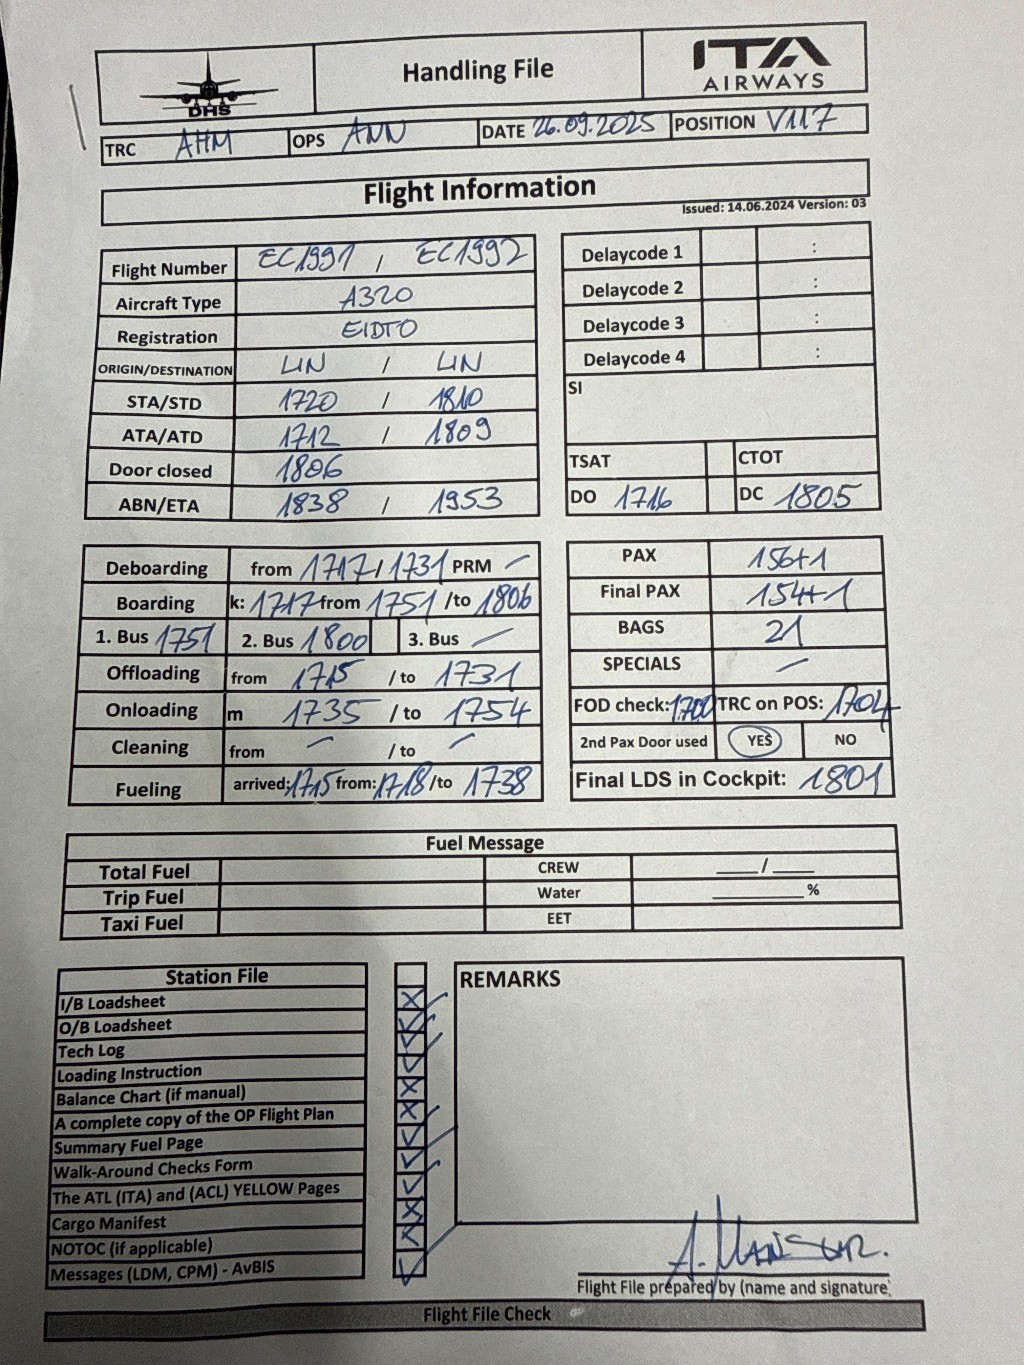 DHS
Handling File
ITA
AIRWAYS
TRC AHM OPS ANN DATE 26.09.2025 POSITION V117
Flight Information
Issued: 14.06.2024 Version: 03
Flight Number EC1991 / EC1992
Aircraft Type A320
Registration EIDTO
ORIGIN/DESTINATION LIN / LIN
STA/STD 1720 / 1810
ATA/ATD 1712 / 1809
Door closed 1806
ABN/ETA 1838 / 1953
Delaycode 1 :
Delaycode 2 :
Delaycode 3 :
Delaycode 4 :
SI
TSAT CTOT
DO 1716 DC 1805
Deboarding from 1717 / 1731 PRM –
Boarding k: 1717 from 1751 /to 1806
1. Bus 1751 2. Bus 1800 3. Bus –
Offloading from 1715 / to 1731
Onloading m 1735 / to 1754
Cleaning from – / to –
Fueling arrived: 1715 from: 1718 /to 1738
PAX 156+1
Final PAX 154+1
BAGS 21
SPECIALS –
FOD check: 1700 TRC on POS: 1704
2nd Pax Door used YES NO
Final LDS in Cockpit: 1801
Fuel Message
Total Fuel CREW ____/____
Trip Fuel Water ________%
Taxi Fuel EET
Station File
I/B Loadsheet
O/B Loadsheet
Tech Log
Loading Instruction
Balance Chart (if manual)
A complete copy of the OP Flight Plan
Summary Fuel Page
Walk-Around Checks Form
The ATL (ITA) and (ACL) YELLOW Pages
Cargo Manifest
NOTOC (if applicable)
Messages (LDM, CPM) - AvBIS
REMARKS
A. MANSUR.
Flight File prepared by (name and signature)
Flight File Check